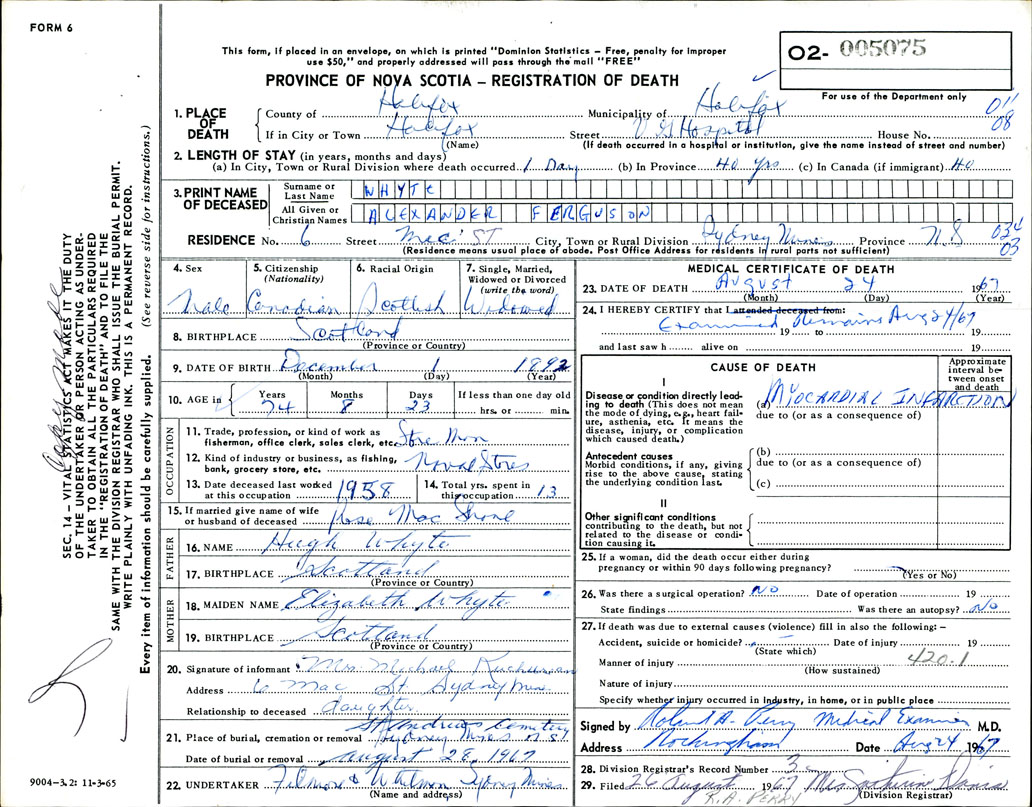 FORM 6
This form, if placed in an envelope, on which is printed "Dominion Statistics – Free, penalty for improper
use $50," and properly addressed will pass through the mail "FREE"
O2- 005075
PROVINCE OF NOVA SCOTIA – REGISTRATION OF DEATH
For use of the Department only
1. PLACE OF DEATH
County of Halifax Municipality of Halifax 011
If in City or Town Halifax Street V G Hospital House No. 08
(Name) (If death occurred in a hospital or institution, give the name instead of street and number)
2. LENGTH OF STAY (in years, months and days)
(a) In City, Town or Rural Division where death occurred 1 Day (b) In Province 40 Yrs (c) In Canada (if immigrant) 40
3. PRINT NAME OF DECEASED
Surname or Last Name WHYTE
All Given or Christian Names ALEXANDER FERGUSON
RESIDENCE No. 6 Street Mac ST City, Town or Rural Division Sydney Mines Province N.S 034
03
(Residence means usual place of abode. Post Office Address for residents in rural parts not sufficient)
4. Sex
Male
5. Citizenship (Nationality)
Canadian
6. Racial Origin
Scottish
7. Single, Married, Widowed or Divorced (write the word)
Widowed
8. BIRTHPLACE Scotland
(Province or Country)
9. DATE OF BIRTH December 1 1892
(Month) (Day) (Year)
10. AGE in Years 74 Months 8 Days 23 If less than one day old hrs. or min.
OCCUPATION
11. Trade, profession, or kind of work as fisherman, office clerk, sales clerk, etc. Store Man
12. Kind of industry or business, as fishing, bank, grocery store, etc. Naval Stores
13. Date deceased last worked at this occupation 1958
14. Total yrs. spent in this occupation 13
15. If married give name of wife or husband of deceased Rose Mac
FATHER
16. NAME Hugh Whyte
17. BIRTHPLACE Scotland
(Province or Country)
MOTHER
18. MAIDEN NAME Elizabeth Whyte
19. BIRTHPLACE Scotland
(Province or Country)
20. Signature of informant Mrs. Michael
Address 6 Mac St. Sydney Mines
Relationship to deceased daughter
St Andrews Cemetery
21. Place of burial, cremation or removal Sydney Mines N.S.
Date of burial or removal August 28, 1967
22. UNDERTAKER Sydney Mines
(Name and address)
MEDICAL CERTIFICATE OF DEATH
23. DATE OF DEATH August 24 1967
(Month) (Day) (Year)
24. I HEREBY CERTIFY that I attended deceased from:
Examined Remains Aug 24/67
19 to 19
and last saw h alive on 19
CAUSE OF DEATH
Approximate interval between onset and death
I
Disease or condition directly leading to death (This does not mean
the mode of dying, e.g., heart failure, asthenia, etc. It means the
disease, injury, or complication
which caused death.)
(a) MYOCARDIAL INFARCTION
due to (or as a consequence of)
Antecedent causes
Morbid conditions, if any, giving
rise to the above cause, stating
the underlying condition last.
(b)
due to (or as a consequence of)
(c)
II
Other significant conditions
contributing to the death, but not
related to the disease or condition causing it.
25. If a woman, did the death occur either during
pregnancy or within 90 days following pregnancy?
(Yes or No)
26. Was there a surgical operation? NO Date of operation 19
State findings Was there an autopsy? NO
27. If death was due to external causes (violence) fill in also the following: –
Accident, suicide or homicide? Date of injury 19
(State which)
Manner of injury 420.1
(How sustained)
Nature of injury
Specify whether injury occurred in industry, in home, or in public place
Signed by Roland A. Perry Medical Examiner M.D.
Address Rockingham Date Aug 24 1967
28. Division Registrar's Record Number 3
29. Filed 26 August 1967 Mrs
(Division Registrar)
R.A. PERRY
SEC. 14 – VITAL STATISTICS ACT MAKES IT THE DUTY
OF THE UNDERTAKER OR PERSON ACTING AS UNDER-
TAKER TO OBTAIN ALL THE PARTICULARS REQUIRED
IN THE "REGISTRATION OF DEATH" AND TO FILE THE
SAME WITH THE DIVISION REGISTRAR WHO SHALL ISSUE THE BURIAL PERMIT.
WRITE PLAINLY WITH UNFADING INK. THIS IS A PERMANENT RECORD.
Every item of information should be carefully supplied. (See reverse side for instructions.)
9004-3.2: 11-3-65